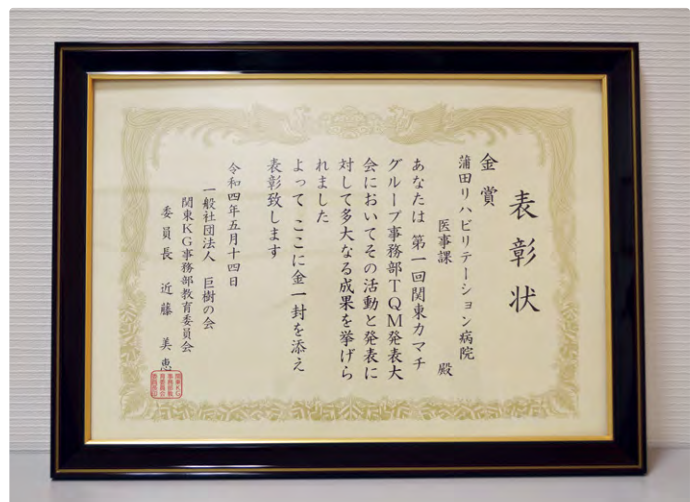 表彰状
金賞
蒲田リハビリテーション病院
医事課 殿
あなたは 第一回関東カマチ
グループ事務部TQM発表大
会においてその活動と発表に
対して多大なる成果を挙げら
れました
よって ここに金一封を添え
表彰致します
令和四年五月十四日
一般社団法人 巨樹の会
関東KG事務部教育委員会
委員長 近藤 美恵